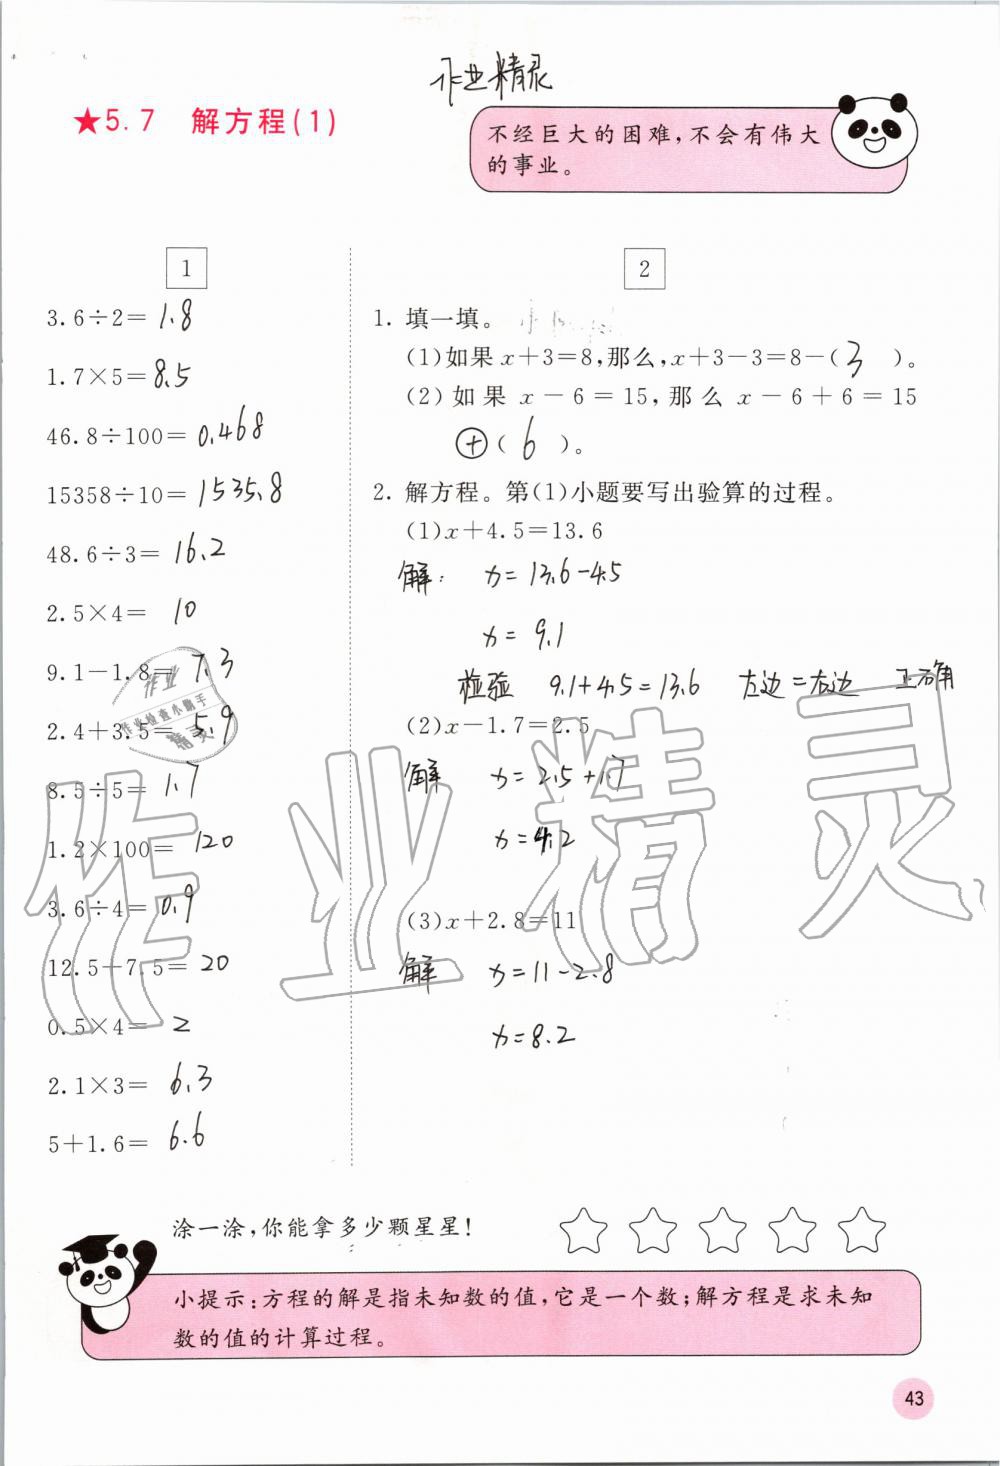 作业精灵
★5.7 解方程(1)
不经巨大的困难,不会有伟大
的事业。
1
3.6÷2= 1.8
1.7×5= 8.5
46.8÷100= 0.468
15358÷10= 1535.8
48.6÷3= 16.2
2.5×4= 10
9.1-1.8= 7.3
2.4+3.5= 5.9
8.5÷5= 1.7
1.2×100= 120
3.6÷4= 0.9
12.5+7.5= 20
0.5×4= 2
2.1×3= 6.3
5+1.6= 6.6
2
1. 填一填。
(1)如果x+3=8,那么,x+3-3=8-( 3 )。
(2)如果 x-6=15,那么 x-6+6=15
⊕( 6 )。
2. 解方程。第(1)小题要写出验算的过程。
(1)x+4.5=13.6
解: x=13.6-4.5
x=9.1
检验 9.1+4.5=13.6 左边=右边 正确
(2)x-1.7=2.5
解 x=2.5+1.7
x=4.2
(3)x+2.8=11
解 x=11-2.8
x=8.2
作业
作业检查小助手
精灵
作业精灵
涂一涂,你能拿多少颗星星!
小提示:方程的解是指未知数的值,它是一个数;解方程是求未知
数的值的计算过程。
43